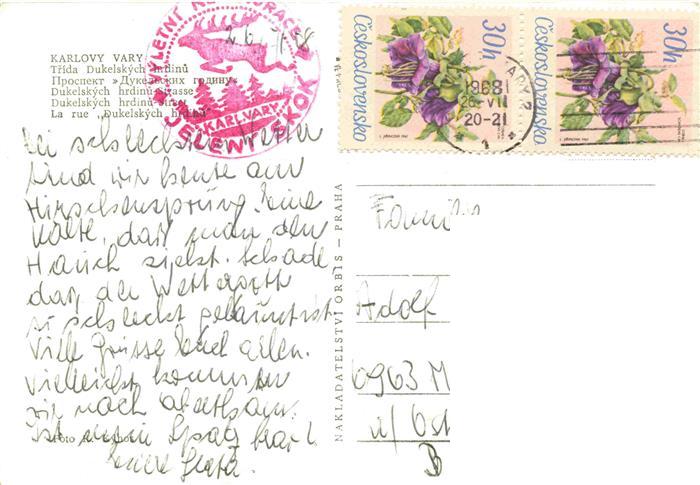 KARLOVY VARY
Třída Dukelských hrdinů
Проспект »Дукельских родину«
Dukelských hrdinů-Strasse
Dukelských hrdinů Street
La rue „Dukelských hrdinů“
VÝLETNÍ RESTAURACE
KARL.VARY
JELENÍ SKOK
Československo 30h
Československo 30h
VARY 2
1968
26.VII
20-21
1
Bei schlechtem Wetter
sind wir heute am
Hirschensprung. Eine
Kälte, daß man den
Hauch sieht. Schade
daß der Wettergott
so schlecht gelaunt ist
Viele Grüsse Euch allen.
Vielleicht kommen
wir nach
Ist
Eure
Foto
NAKLADATELSTVÍ ORBIS – PRAHA
Familie
Adolf
6963 M
B